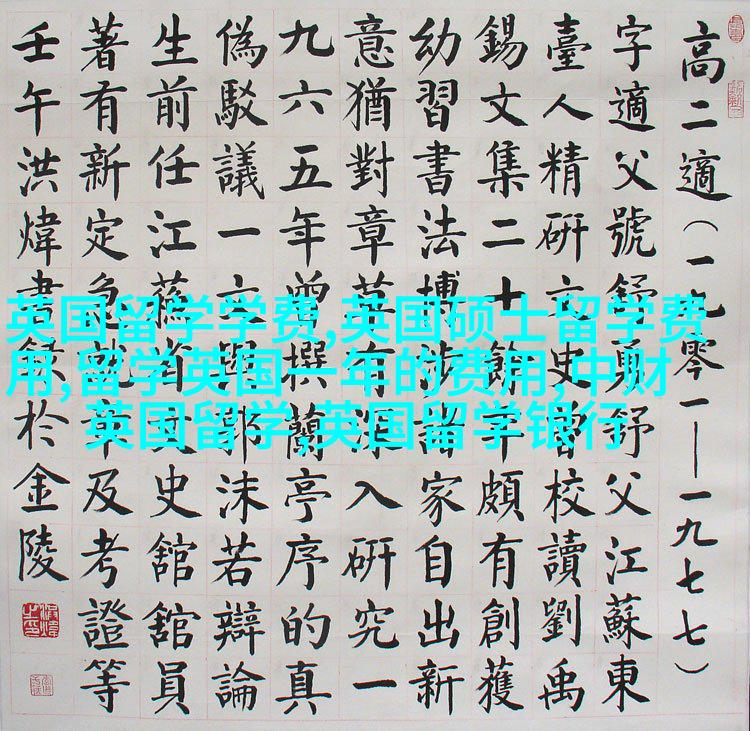 高二適（一九零一——一九七七）
字適父號舒舒父江蘇東
臺人精研文史曾校讀劉禹
錫文集二十餘年頗有創獲
幼習書法博涉諸家自出新
意猶對章草有深入研究一
九六五年曾撰蘭亭序的真
偽駁議一文與郭沫若辯論
生前任江蘇省文史館館員
著有新定急就章及考證等
壬午洪煒書録於金陵
英国留学学费,英国硕士留学费
用,留学英国一年的费用,中财
英国留学,英国留学银行